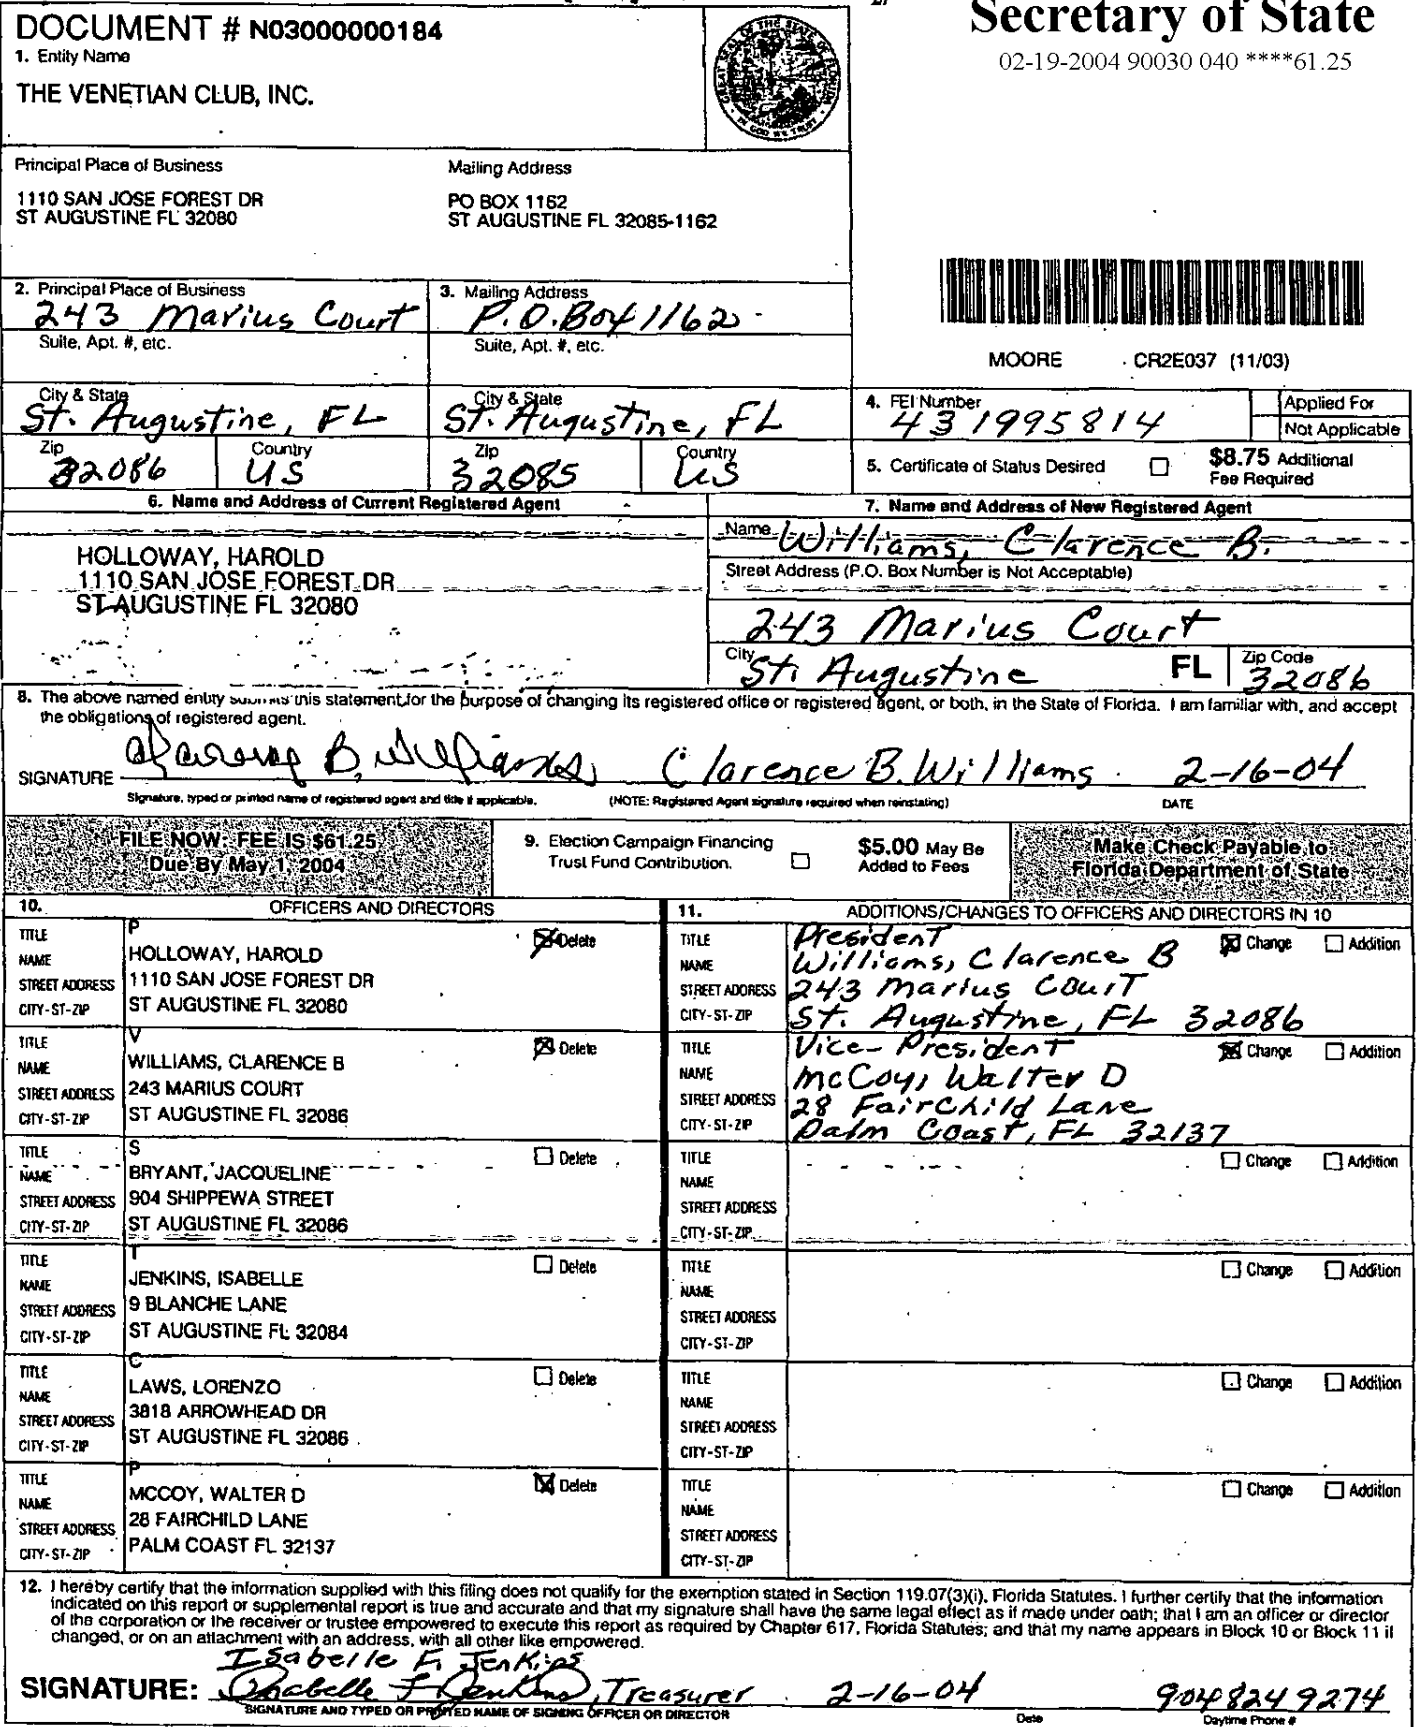 Secretary of State
02-19-2004 90030 040 ****61.25
DOCUMENT # N03000000184
1. Entity Name
THE VENETIAN CLUB, INC.
GREAT SEAL OF THE STATE OF FLORIDA
IN GOD WE TRUST
Principal Place of Business
1110 SAN JOSE FOREST DR
ST AUGUSTINE FL 32080
Mailing Address
PO BOX 1162
ST AUGUSTINE FL 32085-1162
MOORE CR2E037 (11/03)
2. Principal Place of Business
243 Marius Court
Suite, Apt. #, etc.
City & State
St. Augustine, FL
Zip
32086
Country
US
3. Mailing Address
P.O. Box 1162
Suite, Apt. #, etc.
City & State
St. Augustine, FL
Zip
32085
Country
US
4. FEI Number
431995814
Applied For
Not Applicable
5. Certificate of Status Desired
$8.75 Additional
Fee Required
6. Name and Address of Current Registered Agent
HOLLOWAY, HAROLD
1110 SAN JOSE FOREST DR
ST AUGUSTINE FL 32080
7. Name and Address of New Registered Agent
Name Williams, Clarence B.
Street Address (P.O. Box Number is Not Acceptable)
243 Marius Court
City
St. Augustine
FL
Zip Code
32086
8. The above named entity submits this statement for the purpose of changing its registered office or registered agent, or both, in the State of Florida. I am familiar with, and accept
the obligations of registered agent.
SIGNATURE Clarence B. Williams Clarence B. Williams 2-16-04
Signature, typed or printed name of registered agent and title if applicable. (NOTE: Registered Agent signature required when reinstating) DATE
FILE NOW: FEE IS $61.25
Due By May 1, 2004
9. Election Campaign Financing
Trust Fund Contribution.
$5.00 May Be
Added to Fees
Make Check Payable to
Florida Department of State
10. OFFICERS AND DIRECTORS
TITLE P
Delete
NAME HOLLOWAY, HAROLD
STREET ADDRESS 1110 SAN JOSE FOREST DR
CITY-ST-ZIP ST AUGUSTINE FL 32080
TITLE V
Delete
NAME WILLIAMS, CLARENCE B
STREET ADDRESS 243 MARIUS COURT
CITY-ST-ZIP ST AUGUSTINE FL 32086
TITLE S
Delete
NAME BRYANT, JACQUELINE
STREET ADDRESS 904 SHIPPEWA STREET
CITY-ST-ZIP ST AUGUSTINE FL 32086
TITLE T
Delete
NAME JENKINS, ISABELLE
STREET ADDRESS 9 BLANCHE LANE
CITY-ST-ZIP ST AUGUSTINE FL 32084
TITLE C
Delete
NAME LAWS, LORENZO
STREET ADDRESS 3818 ARROWHEAD DR
CITY-ST-ZIP ST AUGUSTINE FL 32086
TITLE P
Delete
NAME MCCOY, WALTER D
STREET ADDRESS 28 FAIRCHILD LANE
CITY-ST-ZIP PALM COAST FL 32137
11. ADDITIONS/CHANGES TO OFFICERS AND DIRECTORS IN 10
TITLE President
Change Addition
NAME Williams, Clarence B
STREET ADDRESS 243 Marius Court
CITY-ST-ZIP St. Augustine, FL 32086
TITLE Vice-President
Change Addition
NAME McCoy, Walter D
STREET ADDRESS 28 Fairchild Lane
CITY-ST-ZIP Palm Coast, FL 32137
TITLE
Change Addition
NAME
STREET ADDRESS
CITY-ST-ZIP
TITLE
Change Addition
NAME
STREET ADDRESS
CITY-ST-ZIP
TITLE
Change Addition
NAME
STREET ADDRESS
CITY-ST-ZIP
TITLE
Change Addition
NAME
STREET ADDRESS
CITY-ST-ZIP
12. I hereby certify that the information supplied with this filing does not qualify for the exemption stated in Section 119.07(3)(i), Florida Statutes. I further certify that the information
indicated on this report or supplemental report is true and accurate and that my signature shall have the same legal effect as if made under oath; that I am an officer or director
of the corporation or the receiver or trustee empowered to execute this report as required by Chapter 617, Florida Statutes; and that my name appears in Block 10 or Block 11 if
changed, or on an attachment with an address, with all other like empowered.
Isabelle F. Jenkins
SIGNATURE: Isabelle F Jenkins, Treasurer 2-16-04 9048249274
SIGNATURE AND TYPED OR PRINTED NAME OF SIGNING OFFICER OR DIRECTOR Date Daytime Phone #